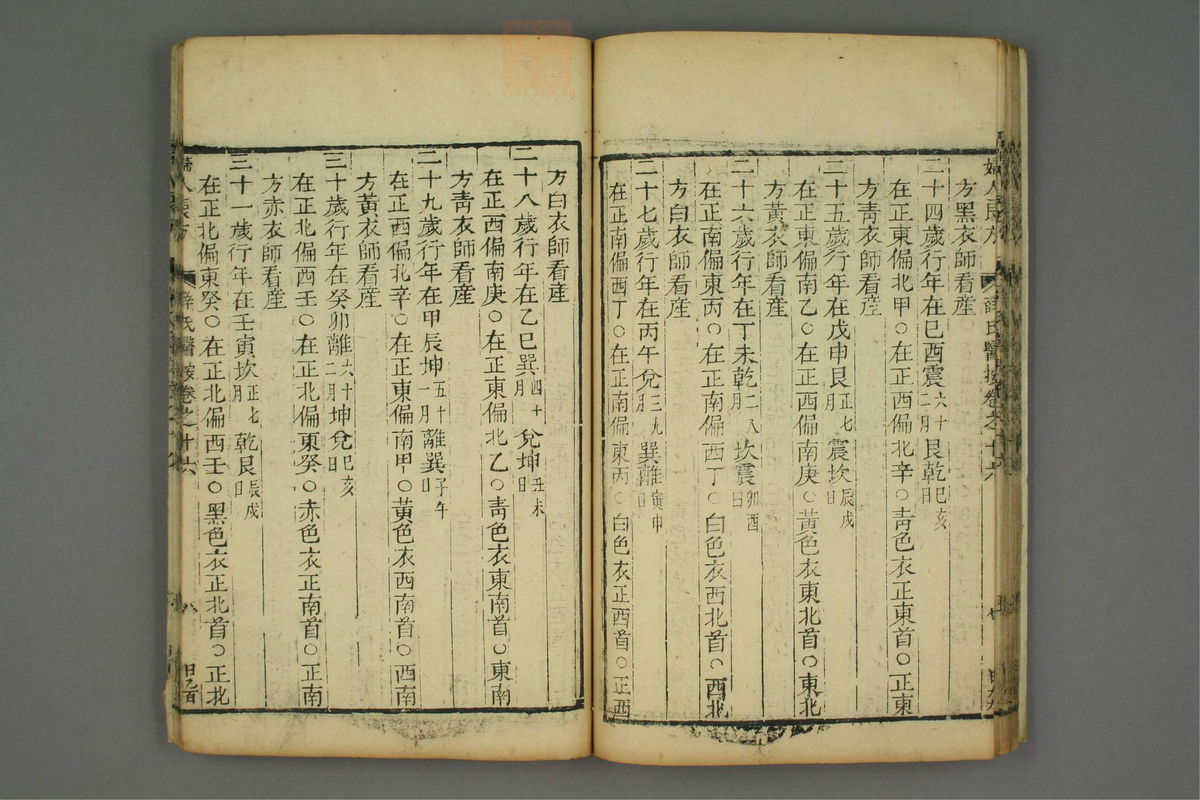 方黑衣師看産
二十四歲行年在巳酉震六十二月艮乾巳亥日
在正東偏北甲○在正西偏北辛○靑色衣正東首○正東
方靑衣師看産
二十五歲行年在戊申艮正七月震坎辰戌日
在正東偏南乙○在正西偏南庚○黃色衣東北首○東北
方黃衣師看産
二十六歲行年在丁未乾二八月坎震卯酉日
在正南偏東丙○在正南偏西丁○白色衣西北首○西北
方白衣師看産
二十七歲行年在丙午兌三九月巽離寅申日
在正南偏西丁○在正南偏東丙○白色衣正西首○正西
方白衣師看産
二十八歲行年在乙巳巽四十月兌坤丑未日
在正西偏南庚○在正東偏北乙○靑色衣東南首○東南
方靑衣師看産
二十九歲行年在甲辰坤五十一月離巽子午日
在正西偏北辛○在正東偏南甲○黃色衣西南首○西南
方黃衣師看産
三十歲行年在癸卯離六十二月坤兌巳亥日
在正北偏西壬○在正北偏東癸○赤色衣正南首○正南
方赤衣師看産
三十一歲行年在壬寅坎正七月乾艮辰戌日
在正北偏東癸○在正北偏西壬○黑色衣正北首○正北
婦人良方
薛氏醫按卷之十六
八